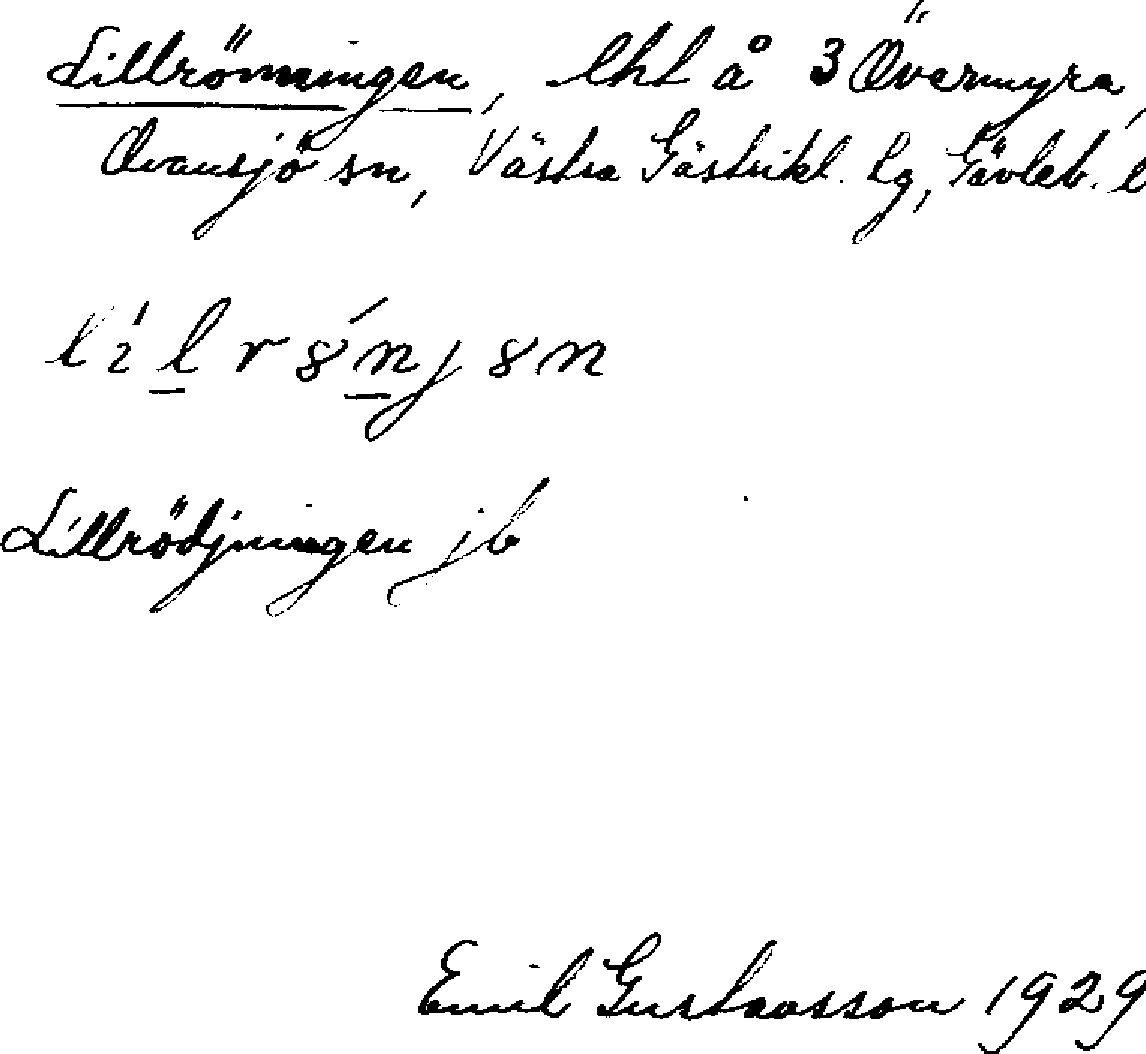 Lillrömningen, lht å 3 Övermyra,
Ovansjö sn, Västra Gästrikl. tg, Gävleb. l
Lillrödjningen jb
Emil Gustavsson 1929